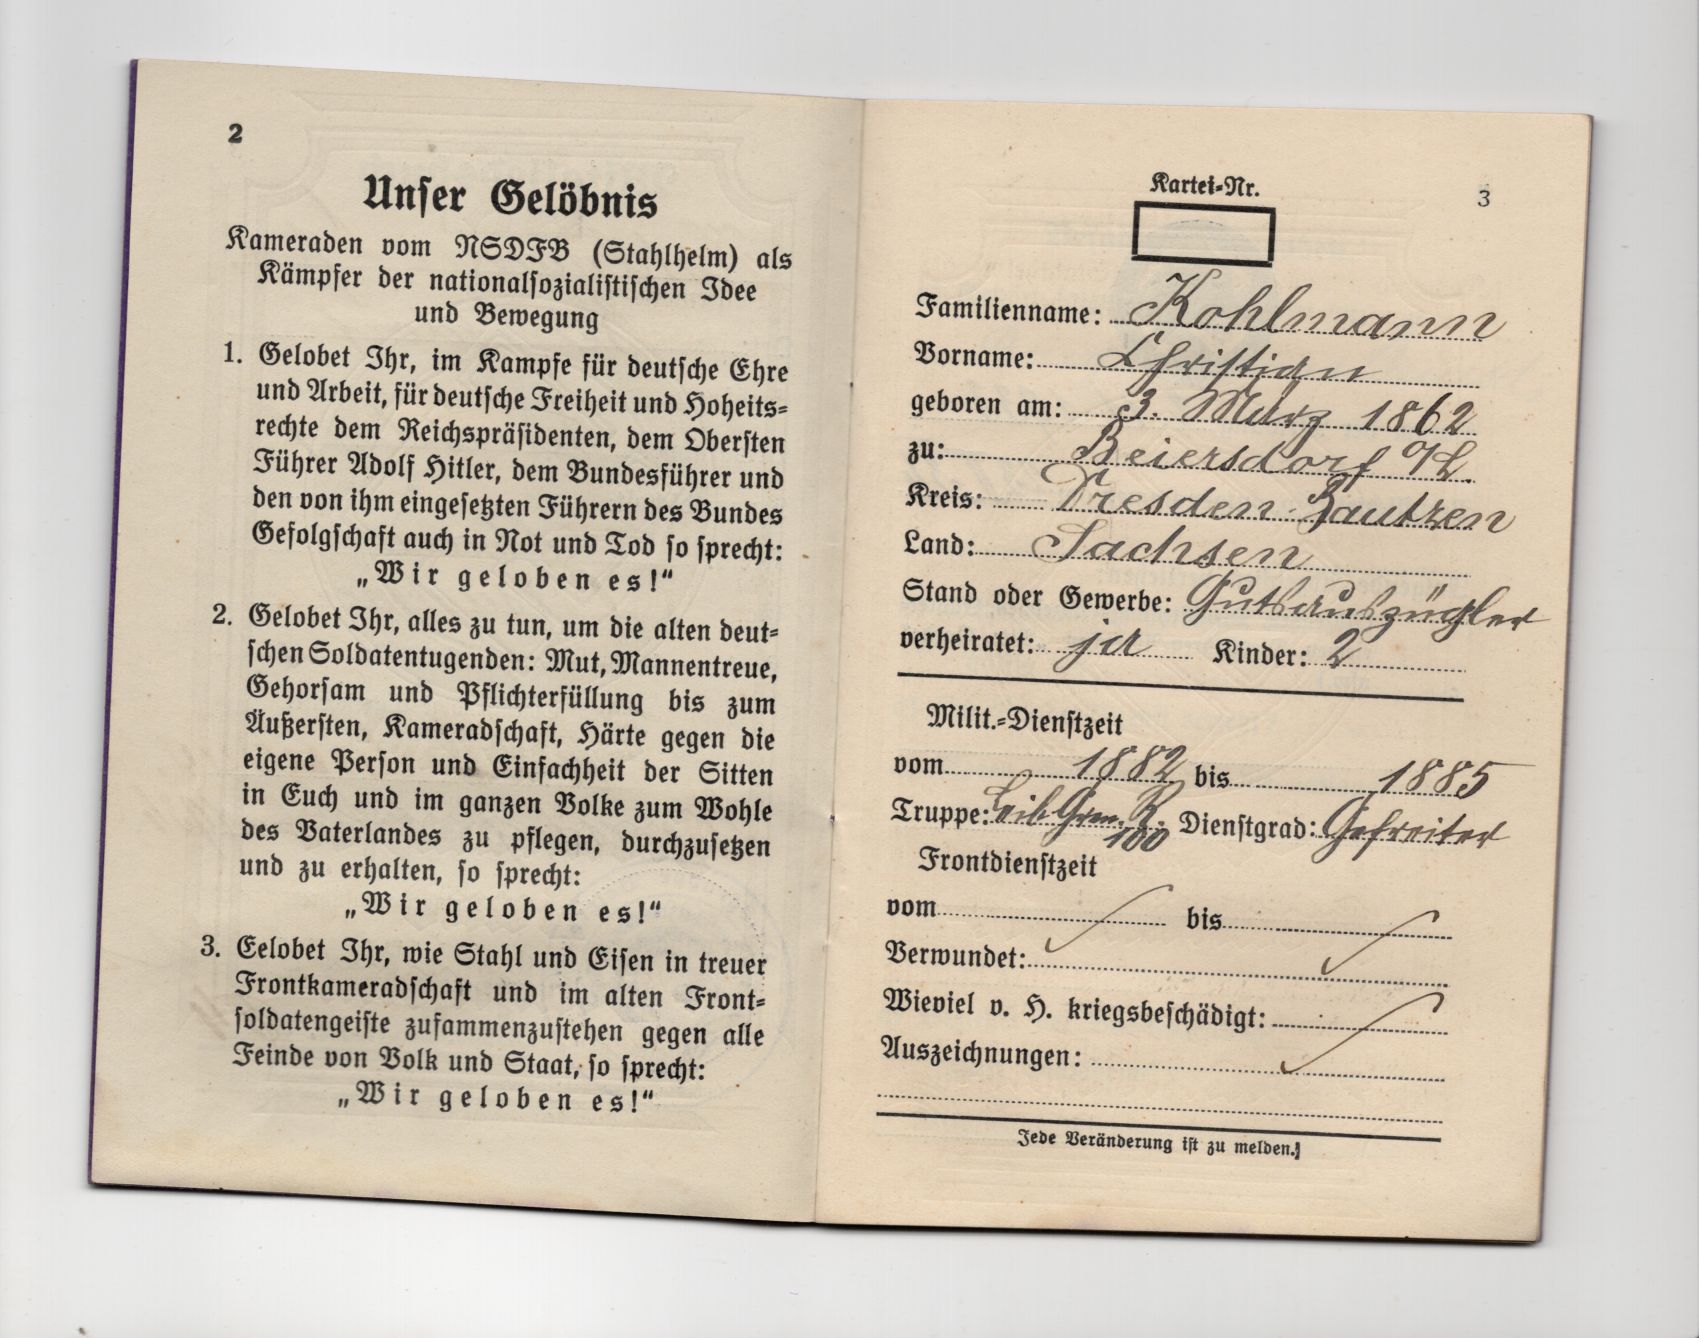 2
Unser Gelöbnis
Kameraden vom NSDFB (Stahlhelm) als
Kämpfer der nationalsozialistischen Idee
und Bewegung
1. Gelobet Ihr, im Kampfe für deutsche Ehre
und Arbeit, für deutsche Freiheit und Hoheits-
rechte dem Reichspräsidenten, dem Obersten
Führer Adolf Hitler, dem Bundesführer und
den von ihm eingesetzten Führern des Bundes
Gefolgschaft auch in Not und Tod so sprecht:
„Wir geloben es!“
2. Gelobet Ihr, alles zu tun, um die alten deut-
schen Soldatentugenden: Mut, Mannentreue,
Gehorsam und Pflichterfüllung bis zum
Äußersten, Kameradschaft, Härte gegen die
eigene Person und Einfachheit der Sitten
in Euch und im ganzen Volke zum Wohle
des Vaterlandes zu pflegen, durchzusetzen
und zu erhalten, so sprecht:
„Wir geloben es!“
3. Eelobet Ihr, wie Stahl und Eisen in treuer
Frontkameradschaft und im alten Front-
soldatengeiste zusammenzustehen gegen alle
Feinde von Volk und Staat, so sprecht:
„Wir geloben es!“
3
Kartei-Nr.
Familienname: Kohlmann
Vorname: Christian
geboren am: 3. März 1862
zu: Beiersdorf O/L.
Kreis: Dresden-Bautzen
Land: Sachsen
Stand oder Gewerbe: Gutsauszügler
verheiratet: ja Kinder: 2
Milit.-Dienstzeit
vom 1882 bis 1885
Truppe: Leib Gren. R. 100 Dienstgrad: Gefreiter
Frontdienstzeit
vom bis
Verwundet:
Wieviel v. H. kriegsbeschädigt:
Auszeichnungen:
Jede Veränderung ist zu melden.